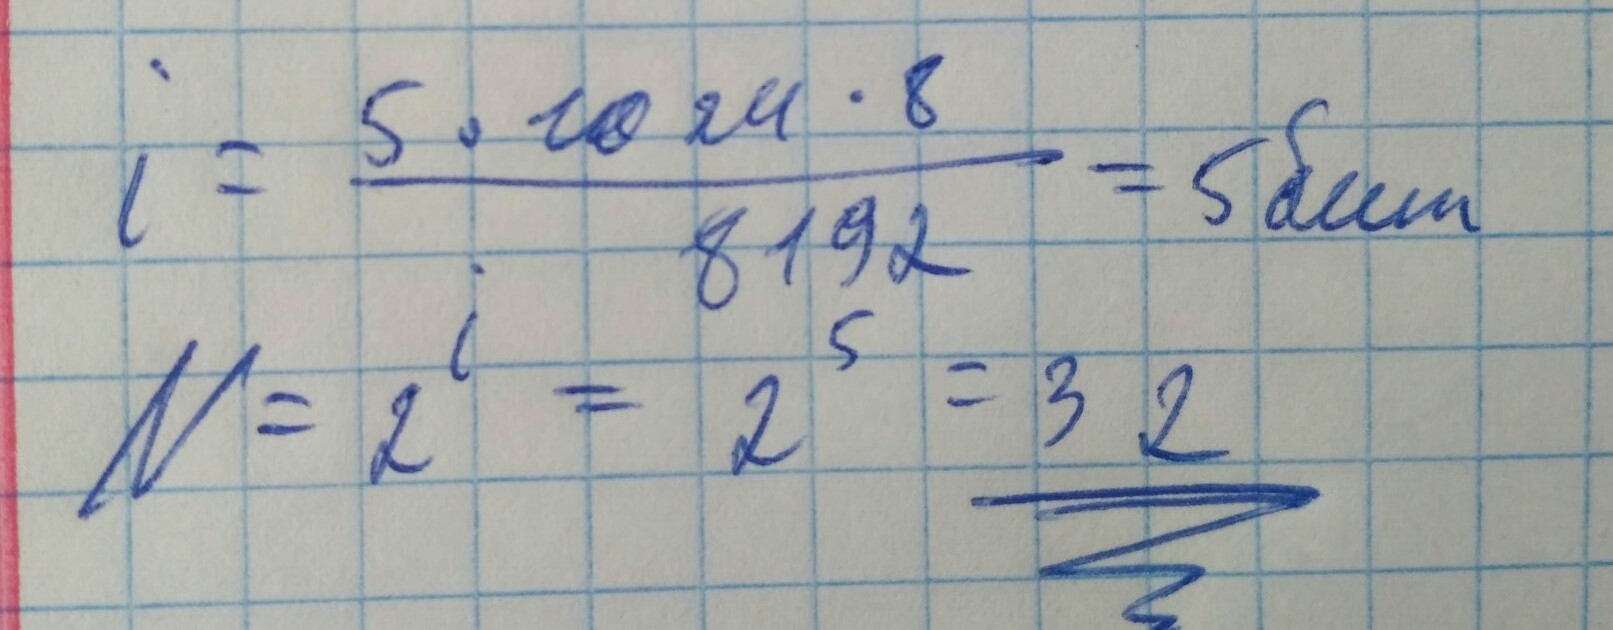 i = 5 · 1024 · 8 / 8192 = 5 бит
N = 2^i = 2^5 = 32